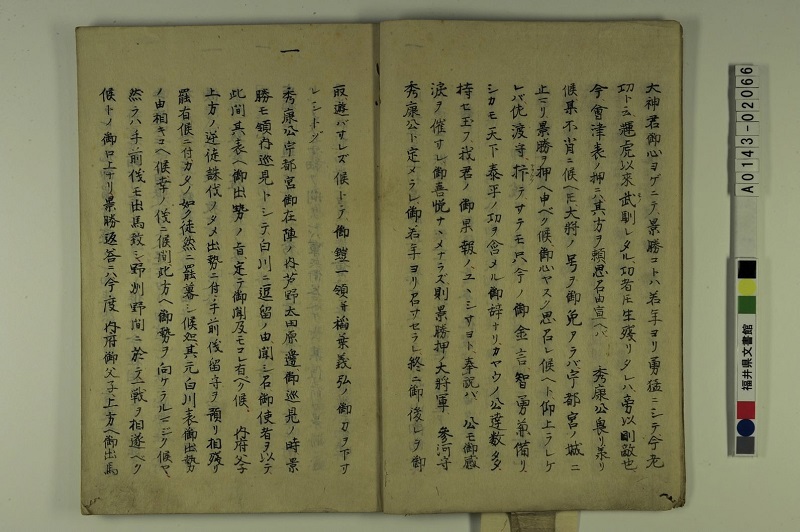 大神君御心ヨゲニテ景勝コトハ若年ヨリ勇猛ニシテ今老
功ト云輝虎以来武馴レタル功者𪜈生残リタレハ旁以剛敵也
今會津表ノ押ニハ其方ヲ頼思召由宣ヘバ 秀康公畏リ承リ
候某不肖ニ候ヘ𪜈大将ノ号ヲ御免アラバ宇都宮ノ城ニ
止リ景勝ヲ押ヘ申ベク候御心ヤスク思召レ候ヘト仰上ラレケ
レバ佐渡守 サテモ只今ノ御金言智勇兼備リ
シカモ天下泰平ノ功ヲ含メル御辞ナリカヤウノ公達数多
持セ玉フ我君ノ御果報ノユヽシサヨト奉説バ 公モ御感
涙ヲ催サレ御喜悦ナヽメナラズ則景勝押ノ大将軍 参河守
秀康公ト定メラレ御若年ヨリ召サセラレ終ニ御後レヲ御
取遊バサレズ候トテ御鎧一領并稲葉義弘ノ御刀ヲ下サ
レシトゾ
一
秀康公宇都宮御在陣ノ内芦野太田原邊御巡見ノ時景
勝モ領内巡見トシテ白川ニ逗留ノ由聞シ召御使者ヲ以テ
此間其表ヘ御出勢ノ旨定テ御聞及モコレ有ヘク候 内府父子
上方ノ逆徒誅伐ノタメ出勢ニ付テ手前儀留守ヲ預リ相残リ
罷有候ニ付カクノ如ク徒然ニ罷暮シ候処其元白川表御出勢
ノ由相キコヘ候幸ノ儀ニ候間此方ヘ御勢ヲ向ケラルベニク候ヤ
然ラハ手前儀モ出馬致シ野州野間ニ於テ一戦ヲ相遂ベク
候トノ御口上ナリ景勝返答ニハ今度 内府御父子上方ヘ御出馬
A0143-02066
福井県文書館